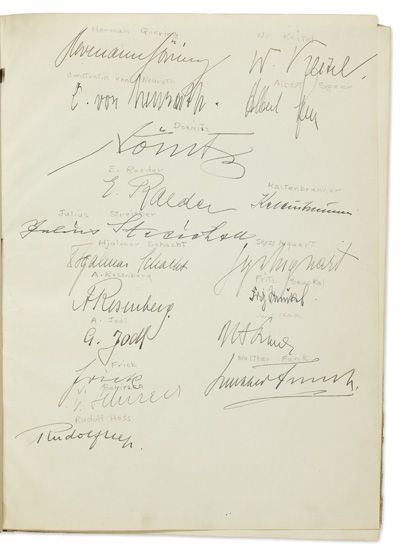 Herman Goering W. Keitel
Hermann Göring W. Keitel.
Konstantin von Neurath Albert Speer
C. von Neurath. Albert Speer
Doenitz
Dönitz
E. Raeder Kaltenbrunner
E Raeder Kaltenbrunner
Julius Streicher
Julius Streicher
Hjalmar Schacht Seyss Inquart
Hjalmar Schacht
A. Rosenberg Fritz Sauckel
A Rosenberg Fritz Sauckel
A. Jodl
G. Jodl
Frick Walther Funk
Frick Walther Funk.
v. Schirach
Rudolf Hess
Rudolf Hess